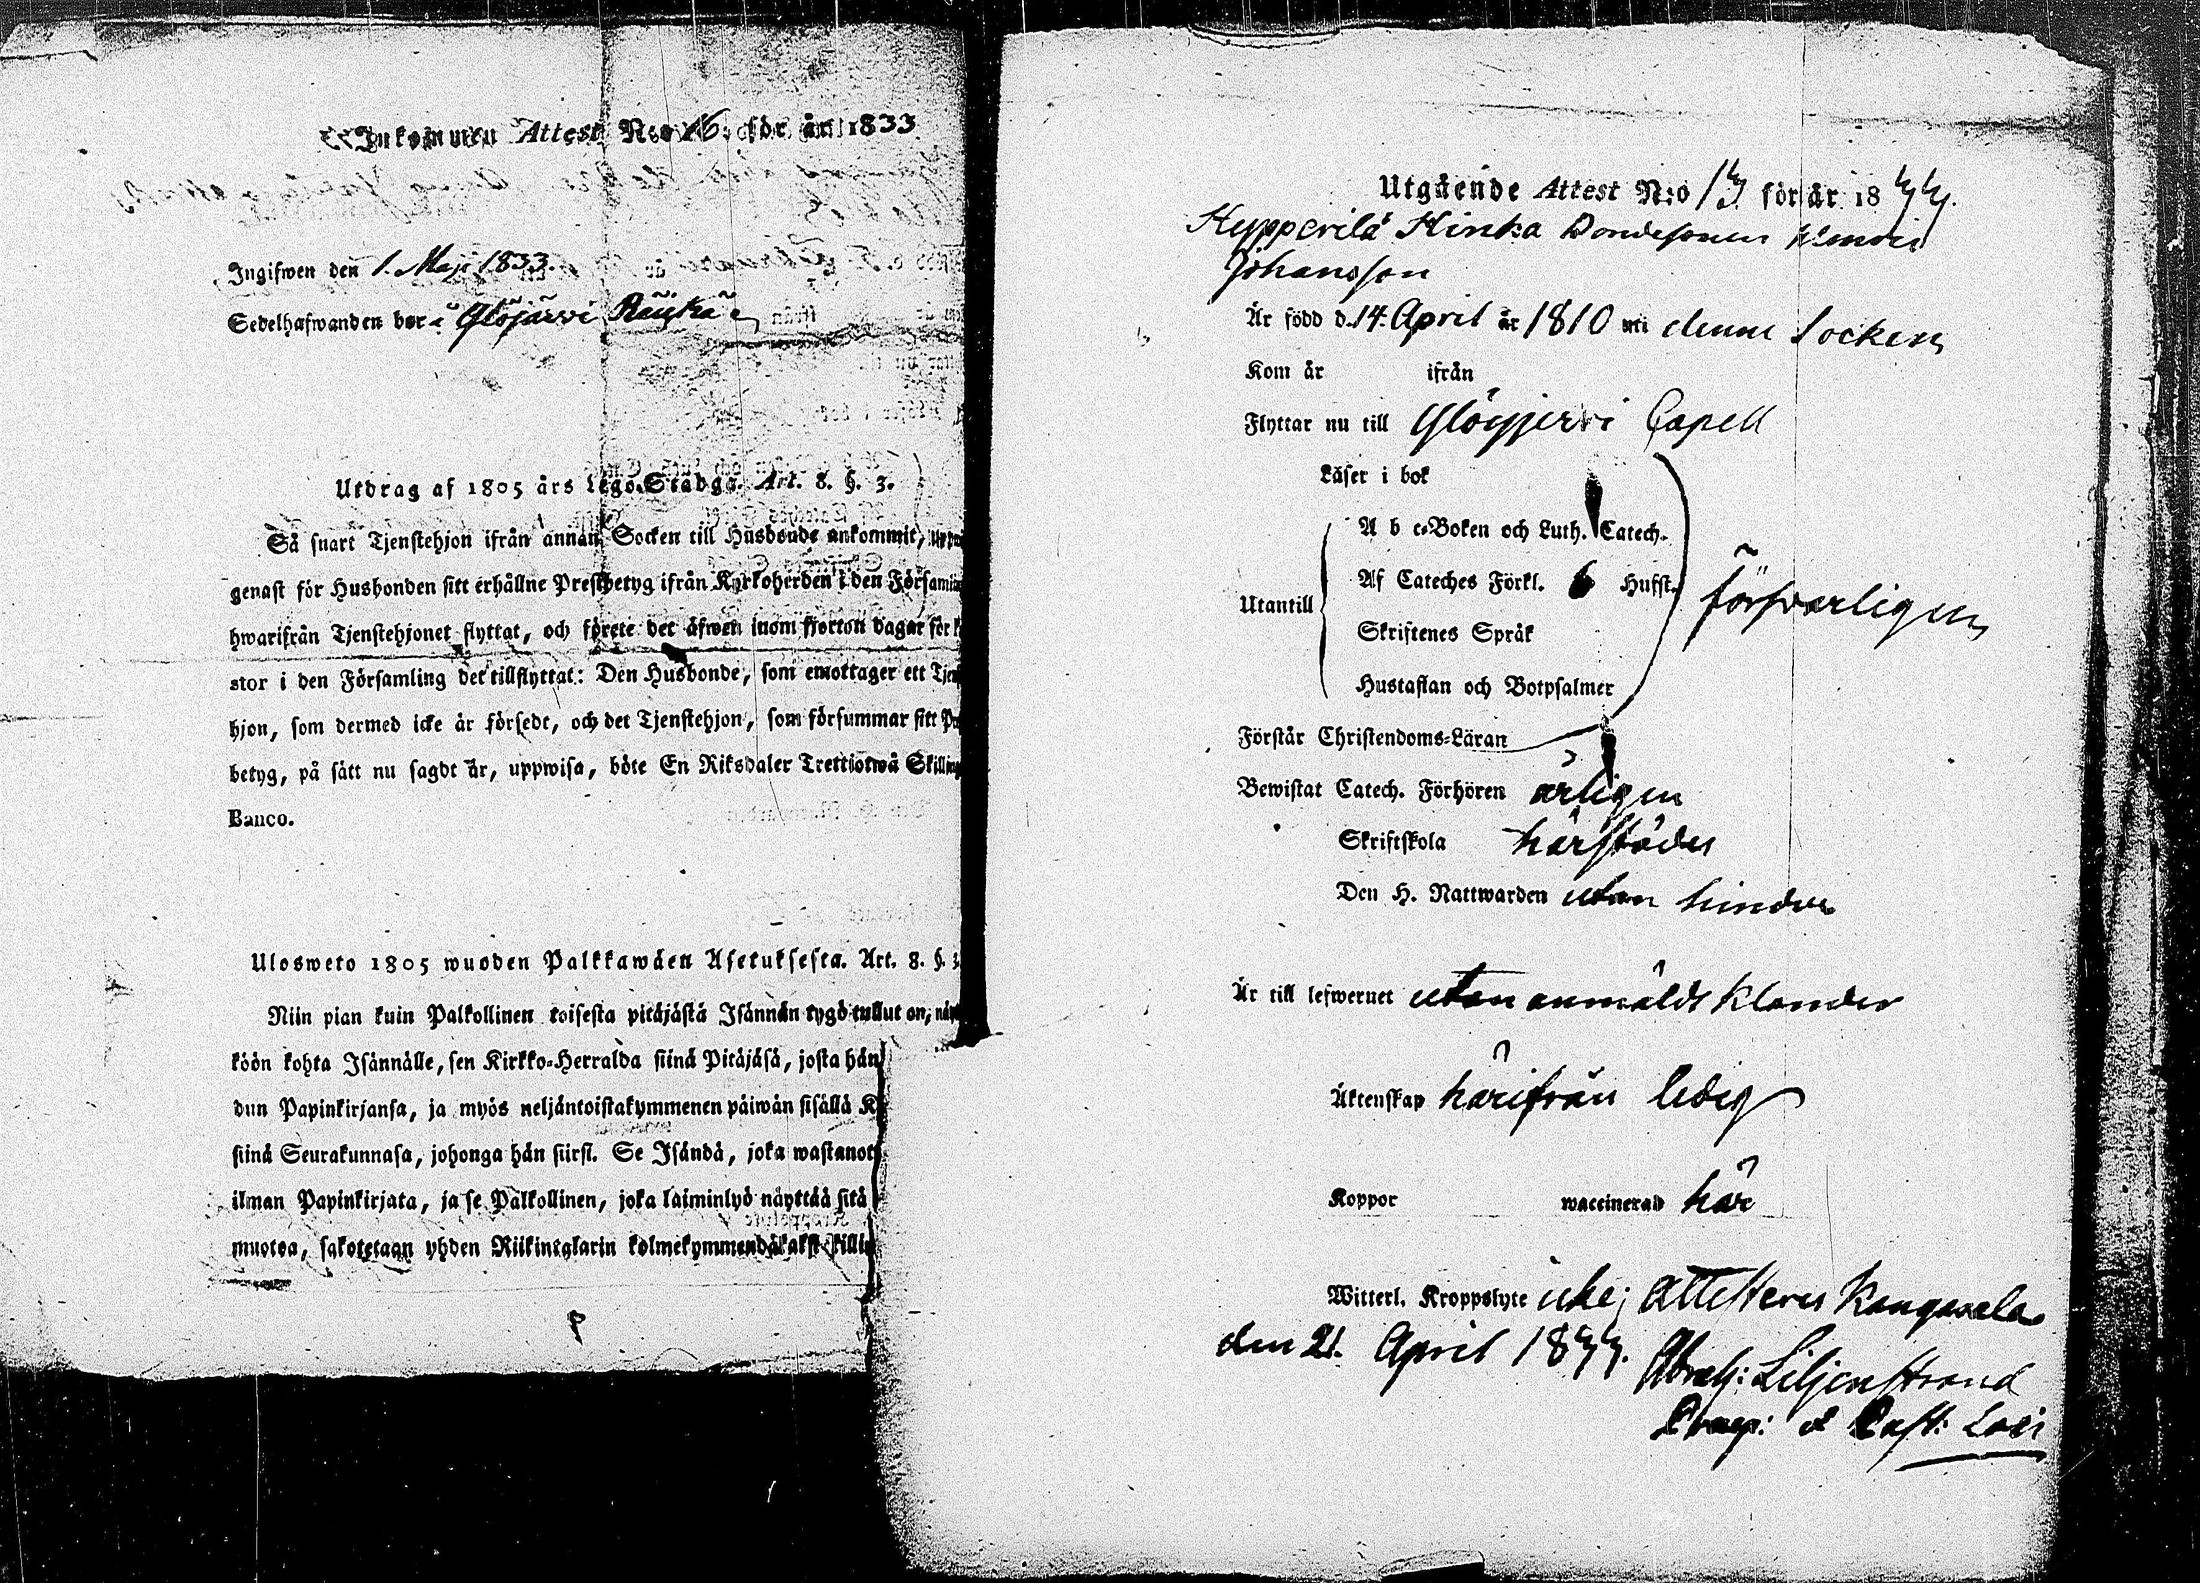 Inkommen Attest N:o 16. för år 1833
Ingifwen den 1. Maji 1833.
Sedelhafwanden bor i Ylöjärvi Räikkä
Utdrag af 1805 års Lego-Stadga. Art. 8. §. 3.
Så snart Tjenstehjon ifrån annan Socken till Husbonde ankommit,
genast för Husbonden sitt erhållne Prestbetyg ifrån Kyrkoherden i den Församl
hwarifrån Tjenstehjonet flyttat, och förete det äfwen inom fjorton dagar för
stor i den Församling det tillflyttat: Den Husbonde, som emottager ett Tjen
hjon, som dermed icke är försedt, och det Tjenstehjon, som försummar sitt Pr
betyg, på sätt nu sagdt är, uppwisa, böte En Riksdaler Trettiotwå Skilling
Banco.
Ulosweto 1805 wuoden Palkkawäen Asetuksesta. Art. 8. §. 3.
Niin pian kuin Palkollinen toisesta pitäjästä Isännän tygö tullut on, näyt
köön kohta Isännälle, sen Kirkko-Herralda siinä Pitäjäsä, josta hän
dun Papinkirjansa, ja myös neljäntoistakymmenen päiwän sisällä K
siinä Seurakunnasa, johonga hän siirsi. Se Isändä, joka wastanot
ilman Papinkirjata, ja se Palkollinen, joka laiminlyö näyttää sitä
muotoa, sakotetaan yhden Riikintalarin kolmekymmendäkaksi killin
Utgående Attest N:o 13 för år 1844.
Hypperilä Hinka Bondesonen
Johansson
Är född d. 14. April år 1810 uti denne Socken
Kom år ifrån
Flyttar nu till Ylöjjerwi Capell
Läser i bok
A b c-Boken och Luth. Catech.
Af Cateches Förkl. 6 Hufst.
Utantill försvarligen
Skriftenes Språk
Hustaflan och Botpsalmer
Förstår Christendoms-Läran
Bewistat Catech. Förhören årligen
Skriftskola härstädes
Den H. Nattwarden utan hinder
Är till lefwernet utan anmäldt klander
Äktenskap härifrån ledig
Koppor waccinerad här
Witterl. Kroppslyte icke; attesteres Kangasala
den 21. April 1844. Abrah: Liljenstrand
Praep: & Past: Loci